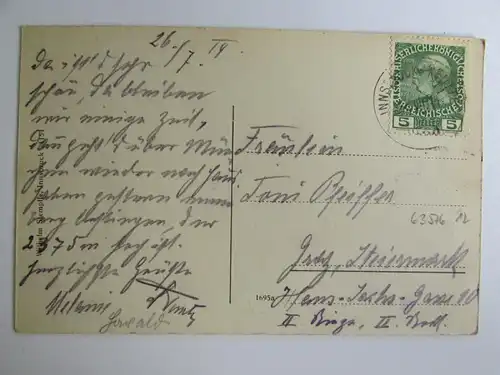 26./7. 14.
Da ist's sehr
schön, da bleiben
wir einige Zeit,
dann geht's über Mün
chen wieder nach Haus
haben gestern einen
berg bestiegen, der
2375m hoch ist.
Herzlichste Grüße
Melanie
Fräulein
Toni Pfeiffer
Graz, Steiermark
Hans-Sachs-Gasse 10
II Stiege, II. Stock
63516
1695a
INNS
KAISERLICHE KÖNIGLICHE
ÖSTERREICHISCHE POST
5 HELLER 5